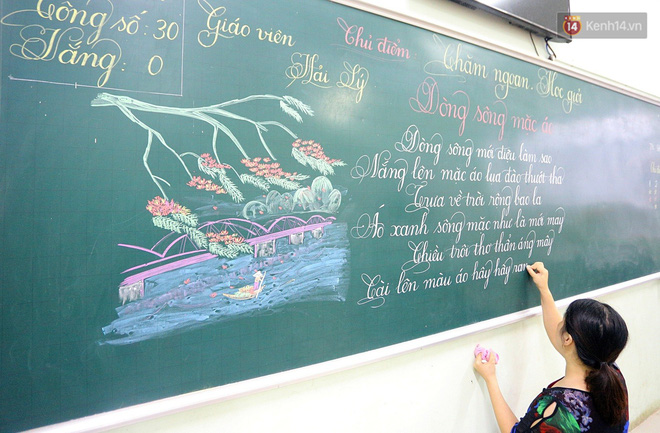 Tổng số: 30
Vắng: 0
Giáo viên
Hải Lý
Chủ điểm
Chăm ngoan - Học giỏi
Dòng sông mặc áo
Dòng sông mới điệu làm sao
Nắng lên mặc áo lụa đào thướt tha
Trưa về trời rộng bao la
Áo xanh sông mặc như là mới may
Chiều trôi thơ thẩn áng mây
Cài lên màu áo hây hây ráng
14 Kenh14.vn